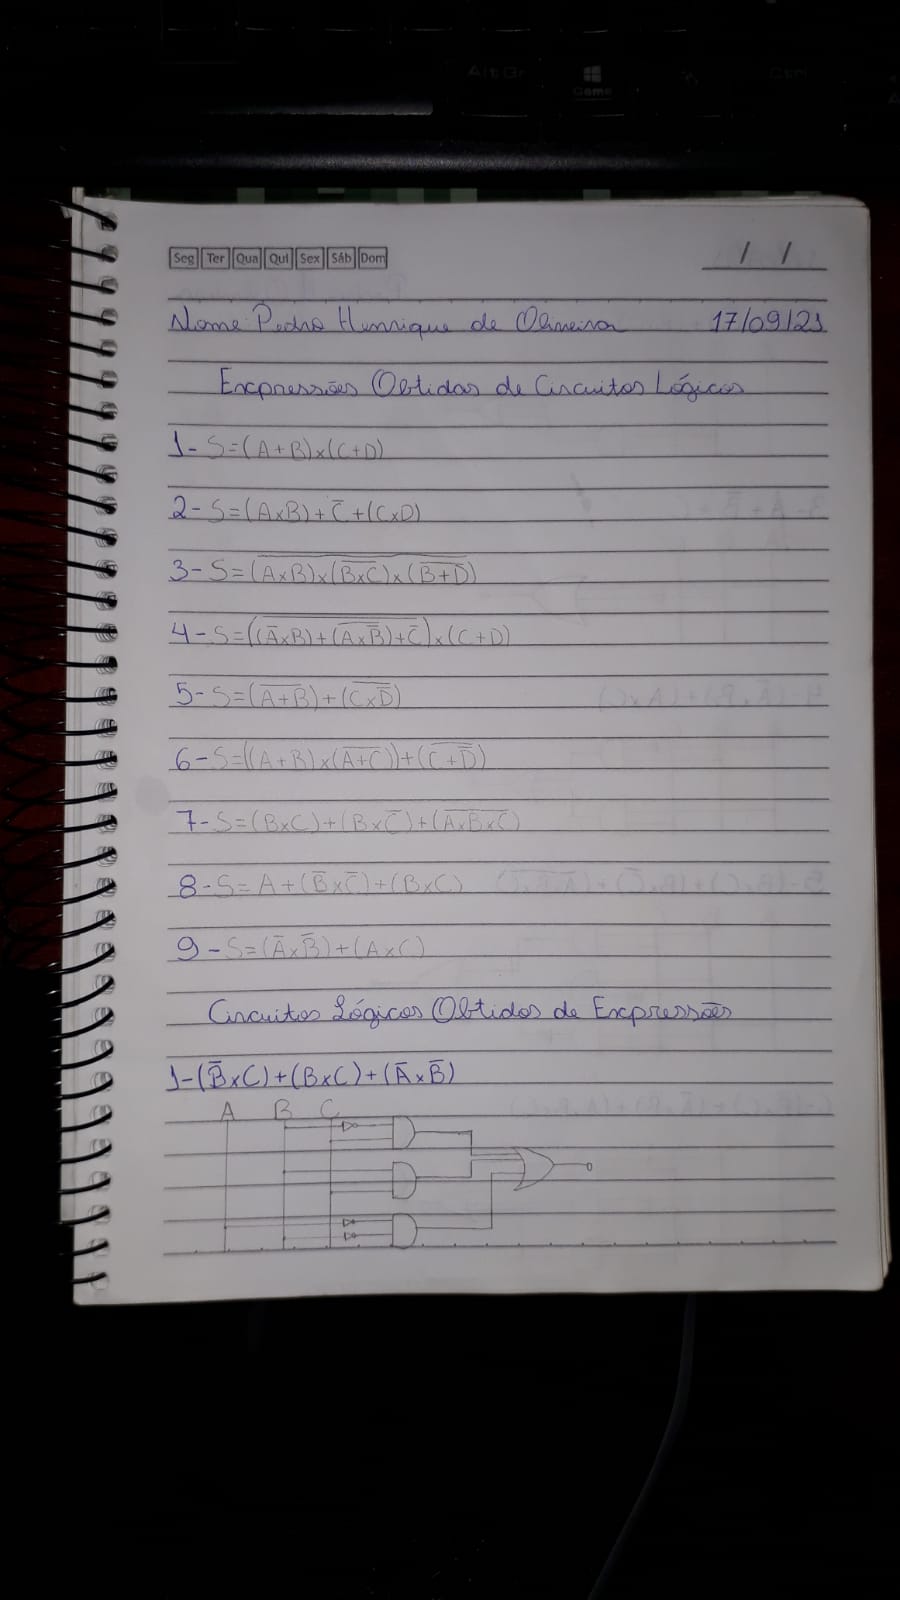 Alt Gr
Game
Ctrl
Seg Ter Qua Qui Sex Sáb Dom / /
Nome Pedro Henrique de Oliveira 17/09/21
Expressões Obtidas de Circuitos Lógicos
1- S=(A+B)×(C+D)
2- S=(A×B)+C̅+(C×D)
3- S=(A×B)×(B×C)×(B+D)
4- S=((A̅×B)+(A×B̅)+C̅)×(C+D)
5- S=(A+B)+(C×D̅)
6- S=((A+B)×(A+C))+(C+D̅)
7- S=(B×C)+(B×C̅)+(A×B×C)
8- S= A+(B̅×C̅)+(B×C)
9- S=(A̅×B̅)+(A×C)
Circuitos Lógicos Obtidos de Expressões
1-(B̅×C)+(B×C)+(A̅×B̅)
A B C